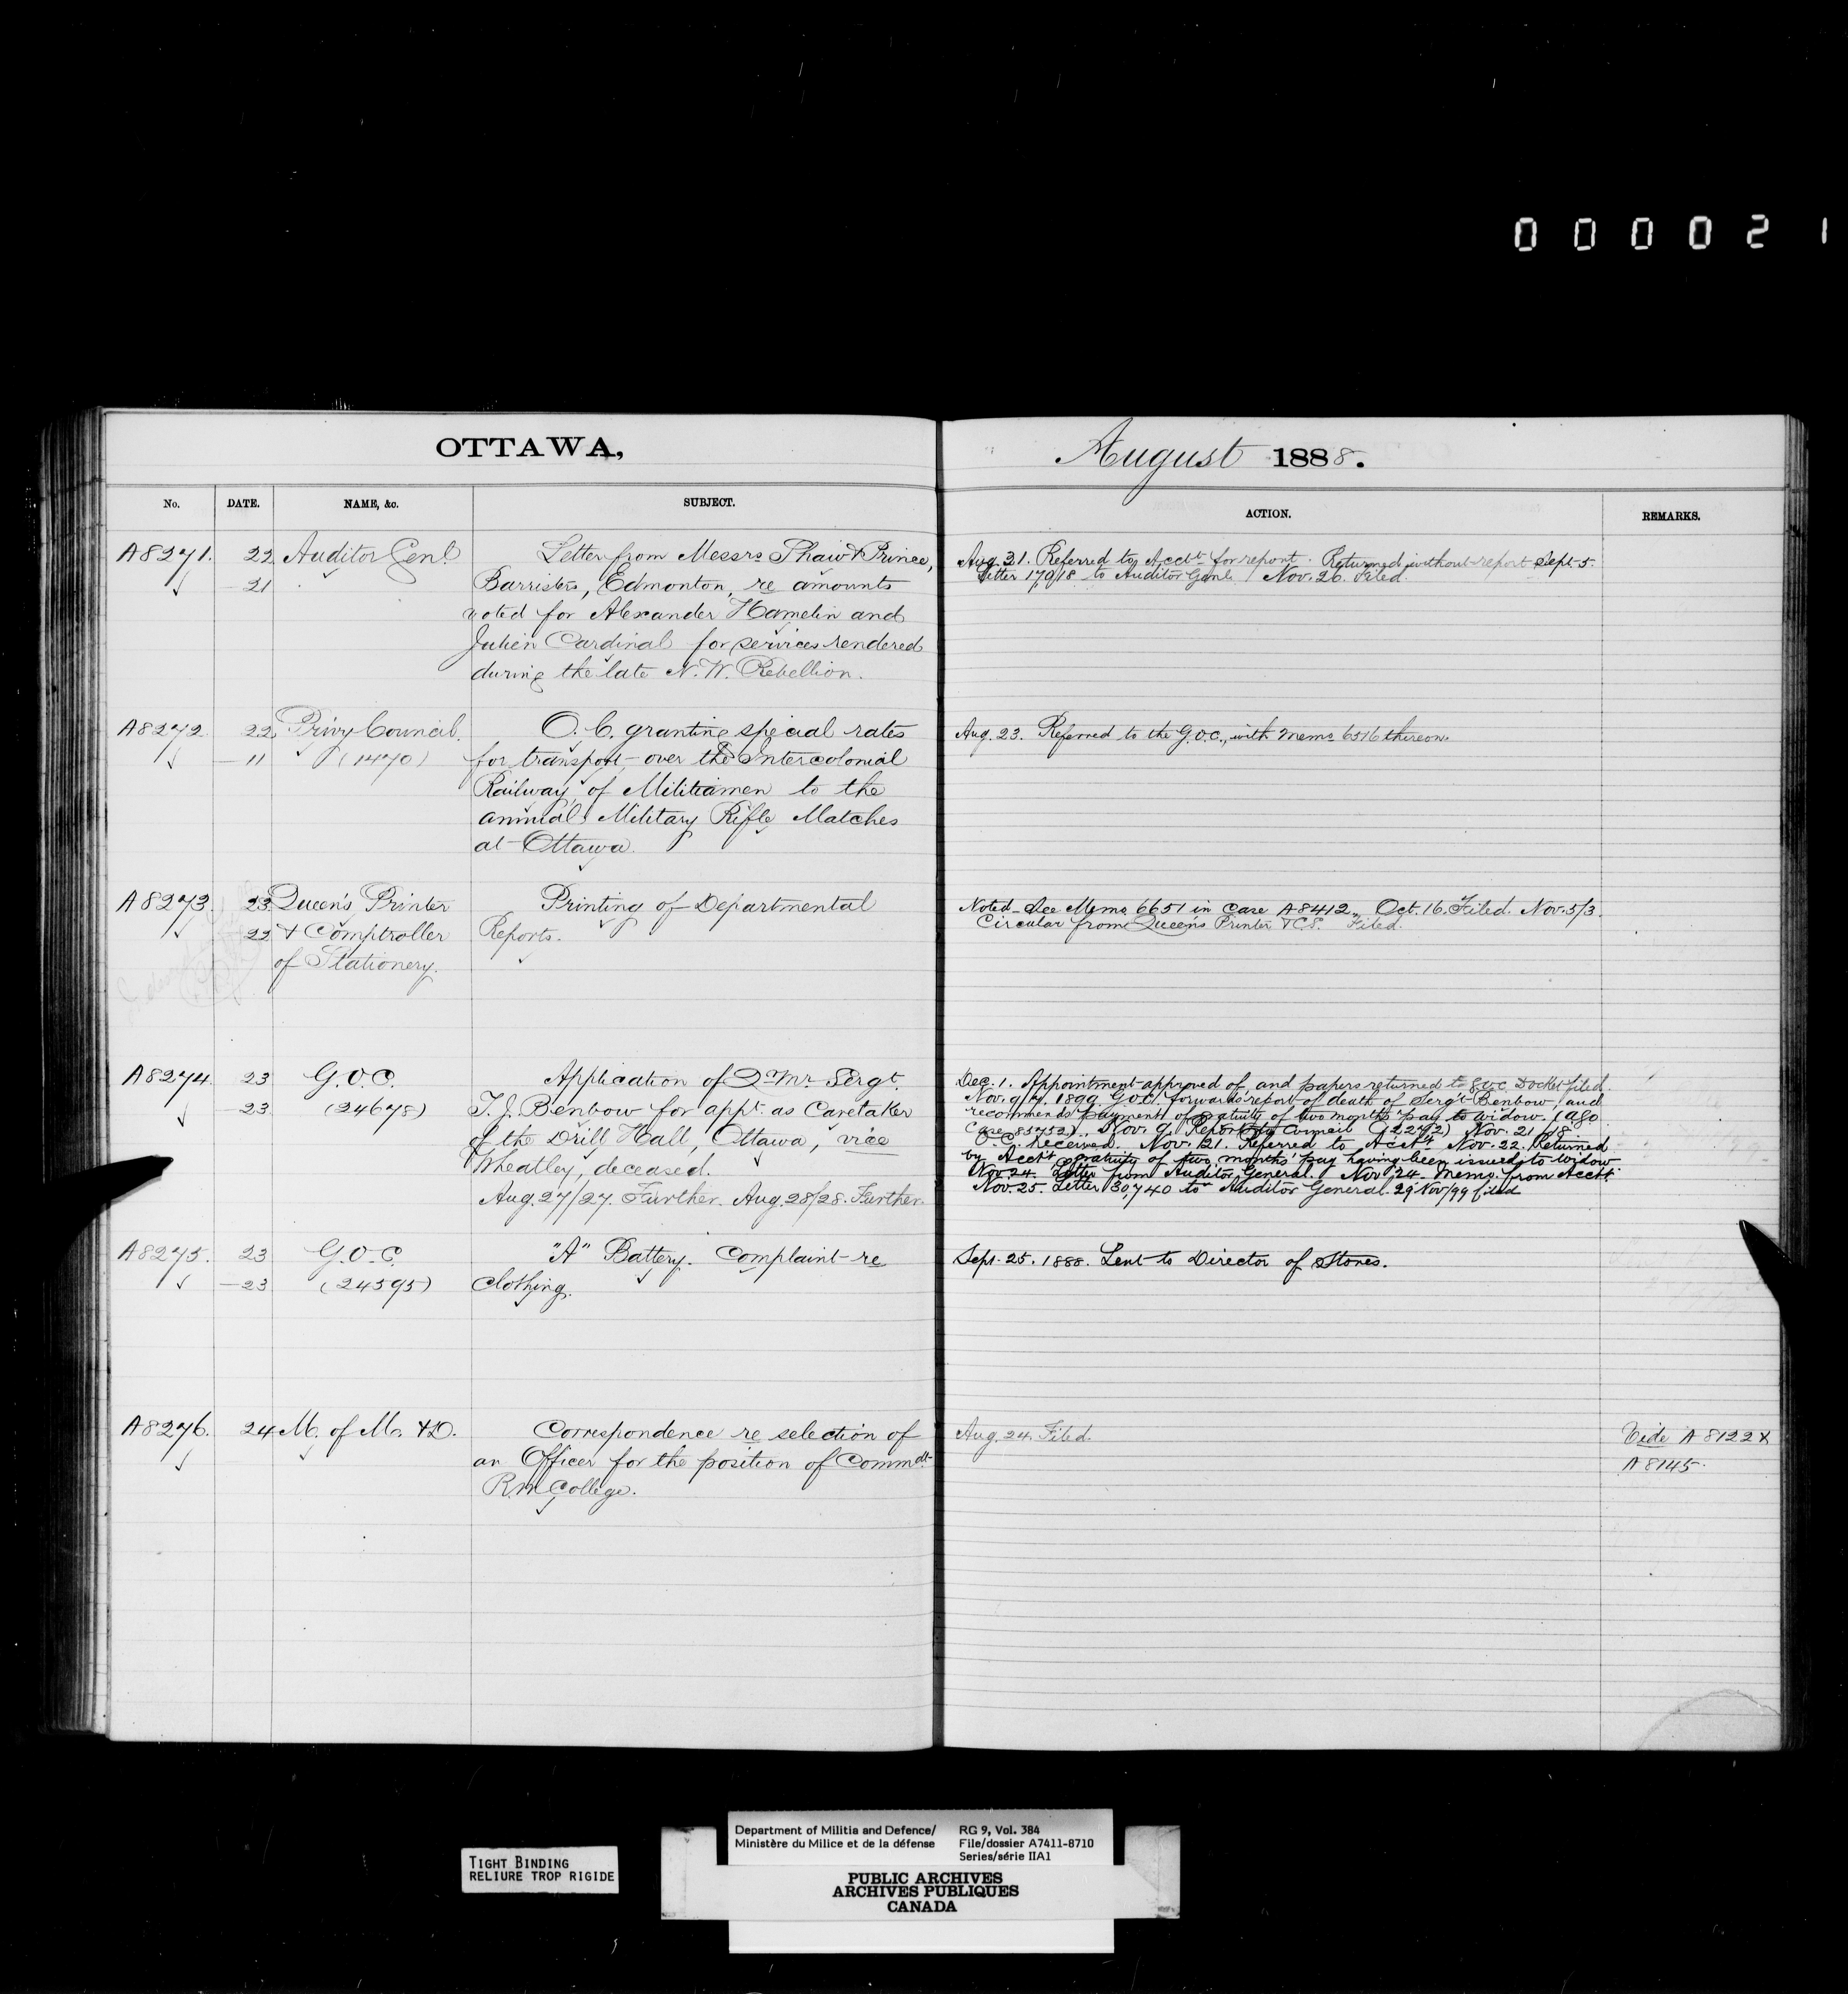 000021
OTTAWA,
August 1888.
No. DATE. NAME, &c. SUBJECT.
ACTION. REMARKS.
A8271. 22 Auditor Genl. Letter from Messrs Shaw & Prince,
21 Barristers, Edmonton, re amounts
voted for Alexander Hamelin and
Julien Cardinal for services rendered
during the late N.W. Rebellion.
Aug. 31. Referred to Acctt for report. Returned without report Sept. 5.
Letter 17918 to Auditor Genl. Nov. 26. Filed.
A8272 22 Privy Council. O.C. granting special rates
11 (1470) for transport over the Intercolonial
Railway, of Militiamen to the
annual Military Rifle Matches
at Ottawa.
Aug. 23. Referred to the G.O.C., with Memo 6516 thereon.
A8273 23 Queen's Printer Printing of Departmental
22 & Comptroller Reports.
of Stationery.
Noted. See Memo 6651 in Case A8412. Oct. 16. Filed. Nov. 5/3.
Circular from Queen's Printer & C.S. Filed.
A8274. 23 G.O.C. Application of Q.Mr. Sergt.
23 (24678) T. J. Benbow for appt. as Caretaker
of the Drill Hall, Ottawa, vice
Wheatley, deceased.
Aug. 27/27. Further. Aug. 28/28. Further.
Dec. 1. Appointment approved of, and papers returned to G.O.C. Docket filed.
Nov. 9/7. 1899. G.O.C. forwards report of death of Sergt. Benbow, and
recommends payment of gratuity of two months' pay to widow. (Ago
Case 85752). Nov. 9. Report to Council (2272) Nov. 21/18
O.C. received. Nov. 21. Referred to Acctt. Nov. 22. Returned
by Acctt, gratuity of two months' pay having been issued to widow
Nov. 24. Letter from Auditor General. Nov. 24. Memo. from Acctt.
Nov. 25. Letter 30740 to Auditor General. 29 Nov/99 filed
A8275. 23 G.O.C. "A" Battery. Complaint re
23 (24595) Clothing.
Sept. 25. 1888. Sent to Director of Stores.
A8276. 24 M. of M. & D. Correspondence re selection of
an Officer for the position of Commdt.
R.M. College.
Aug. 24. Filed.
Vide A 8122 &
A 8145.
Department of Militia and Defence/
Ministère du Milice et de la défense
RG 9, Vol. 384
File/dossier A7411-8710
Series/série IIA1
TIGHT BINDING
RELIURE TROP RIGIDE
PUBLIC ARCHIVES
ARCHIVES PUBLIQUES
CANADA